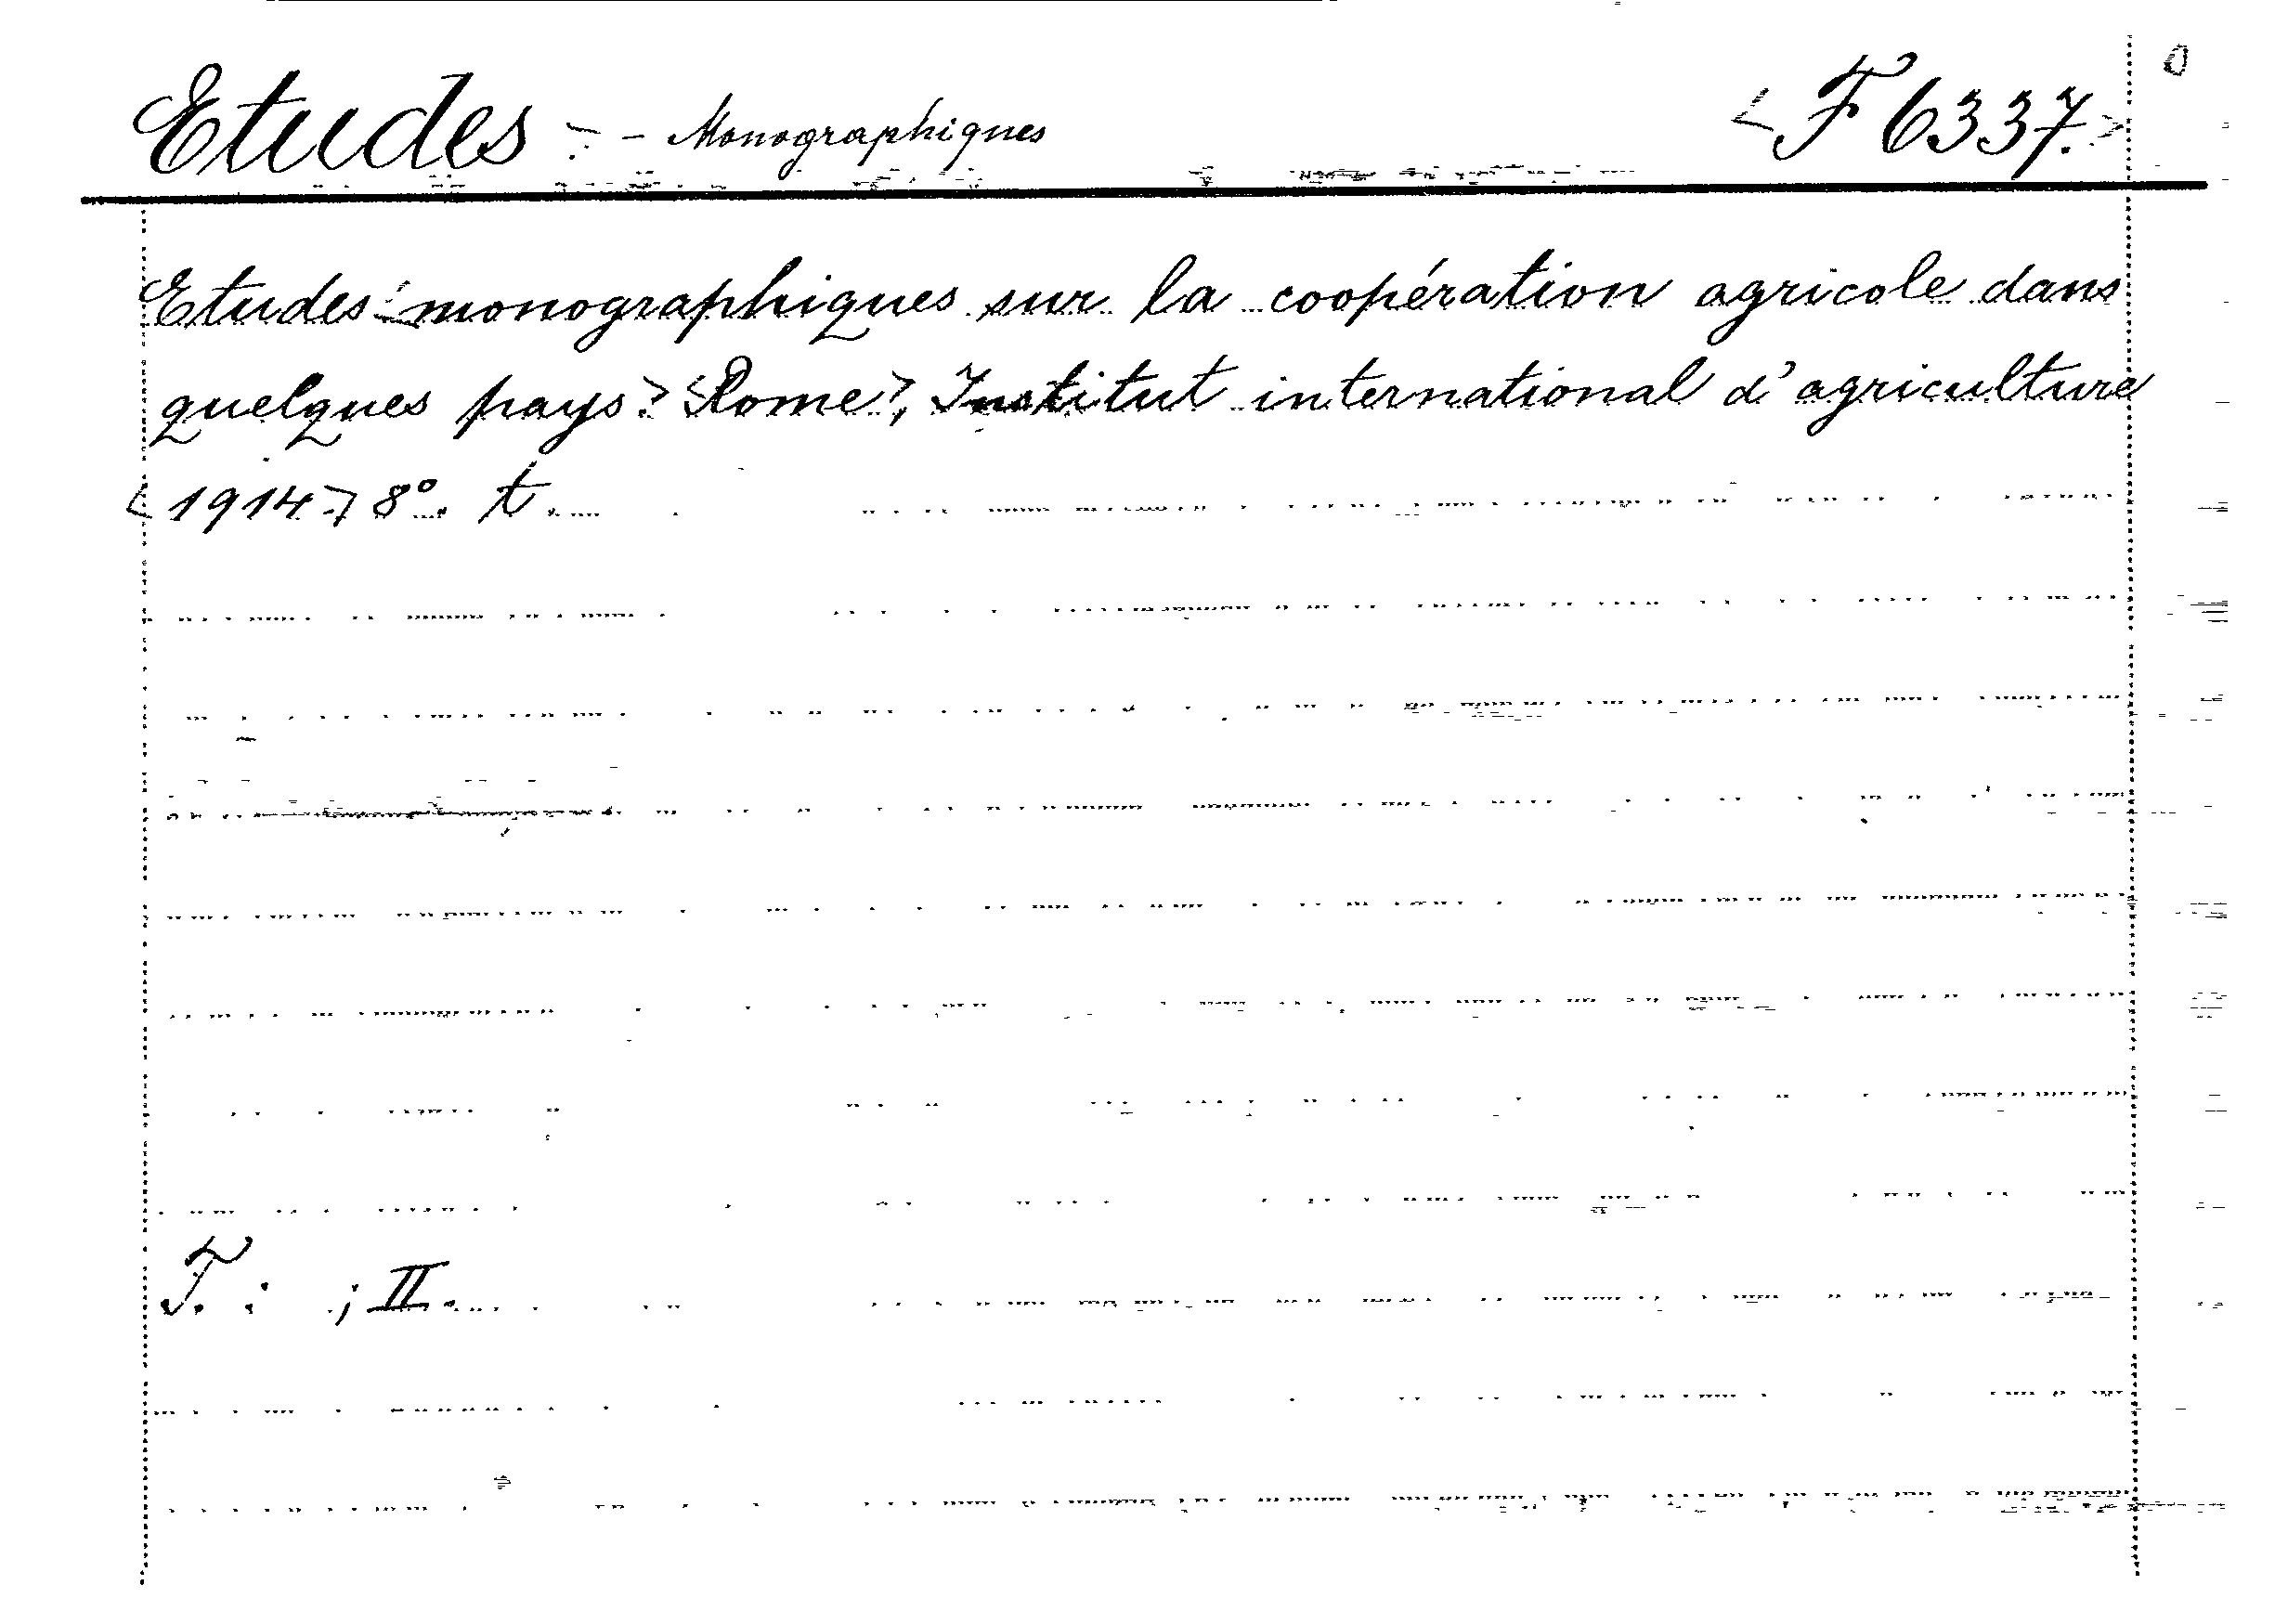 Etudes - - Monographiques <F 6337.>
Etudes monographiques sur la coopération agricole dans
quelques pays. <Rome>, Institut international d'agriculture
<1914> 8°. t.
T. : ; II.